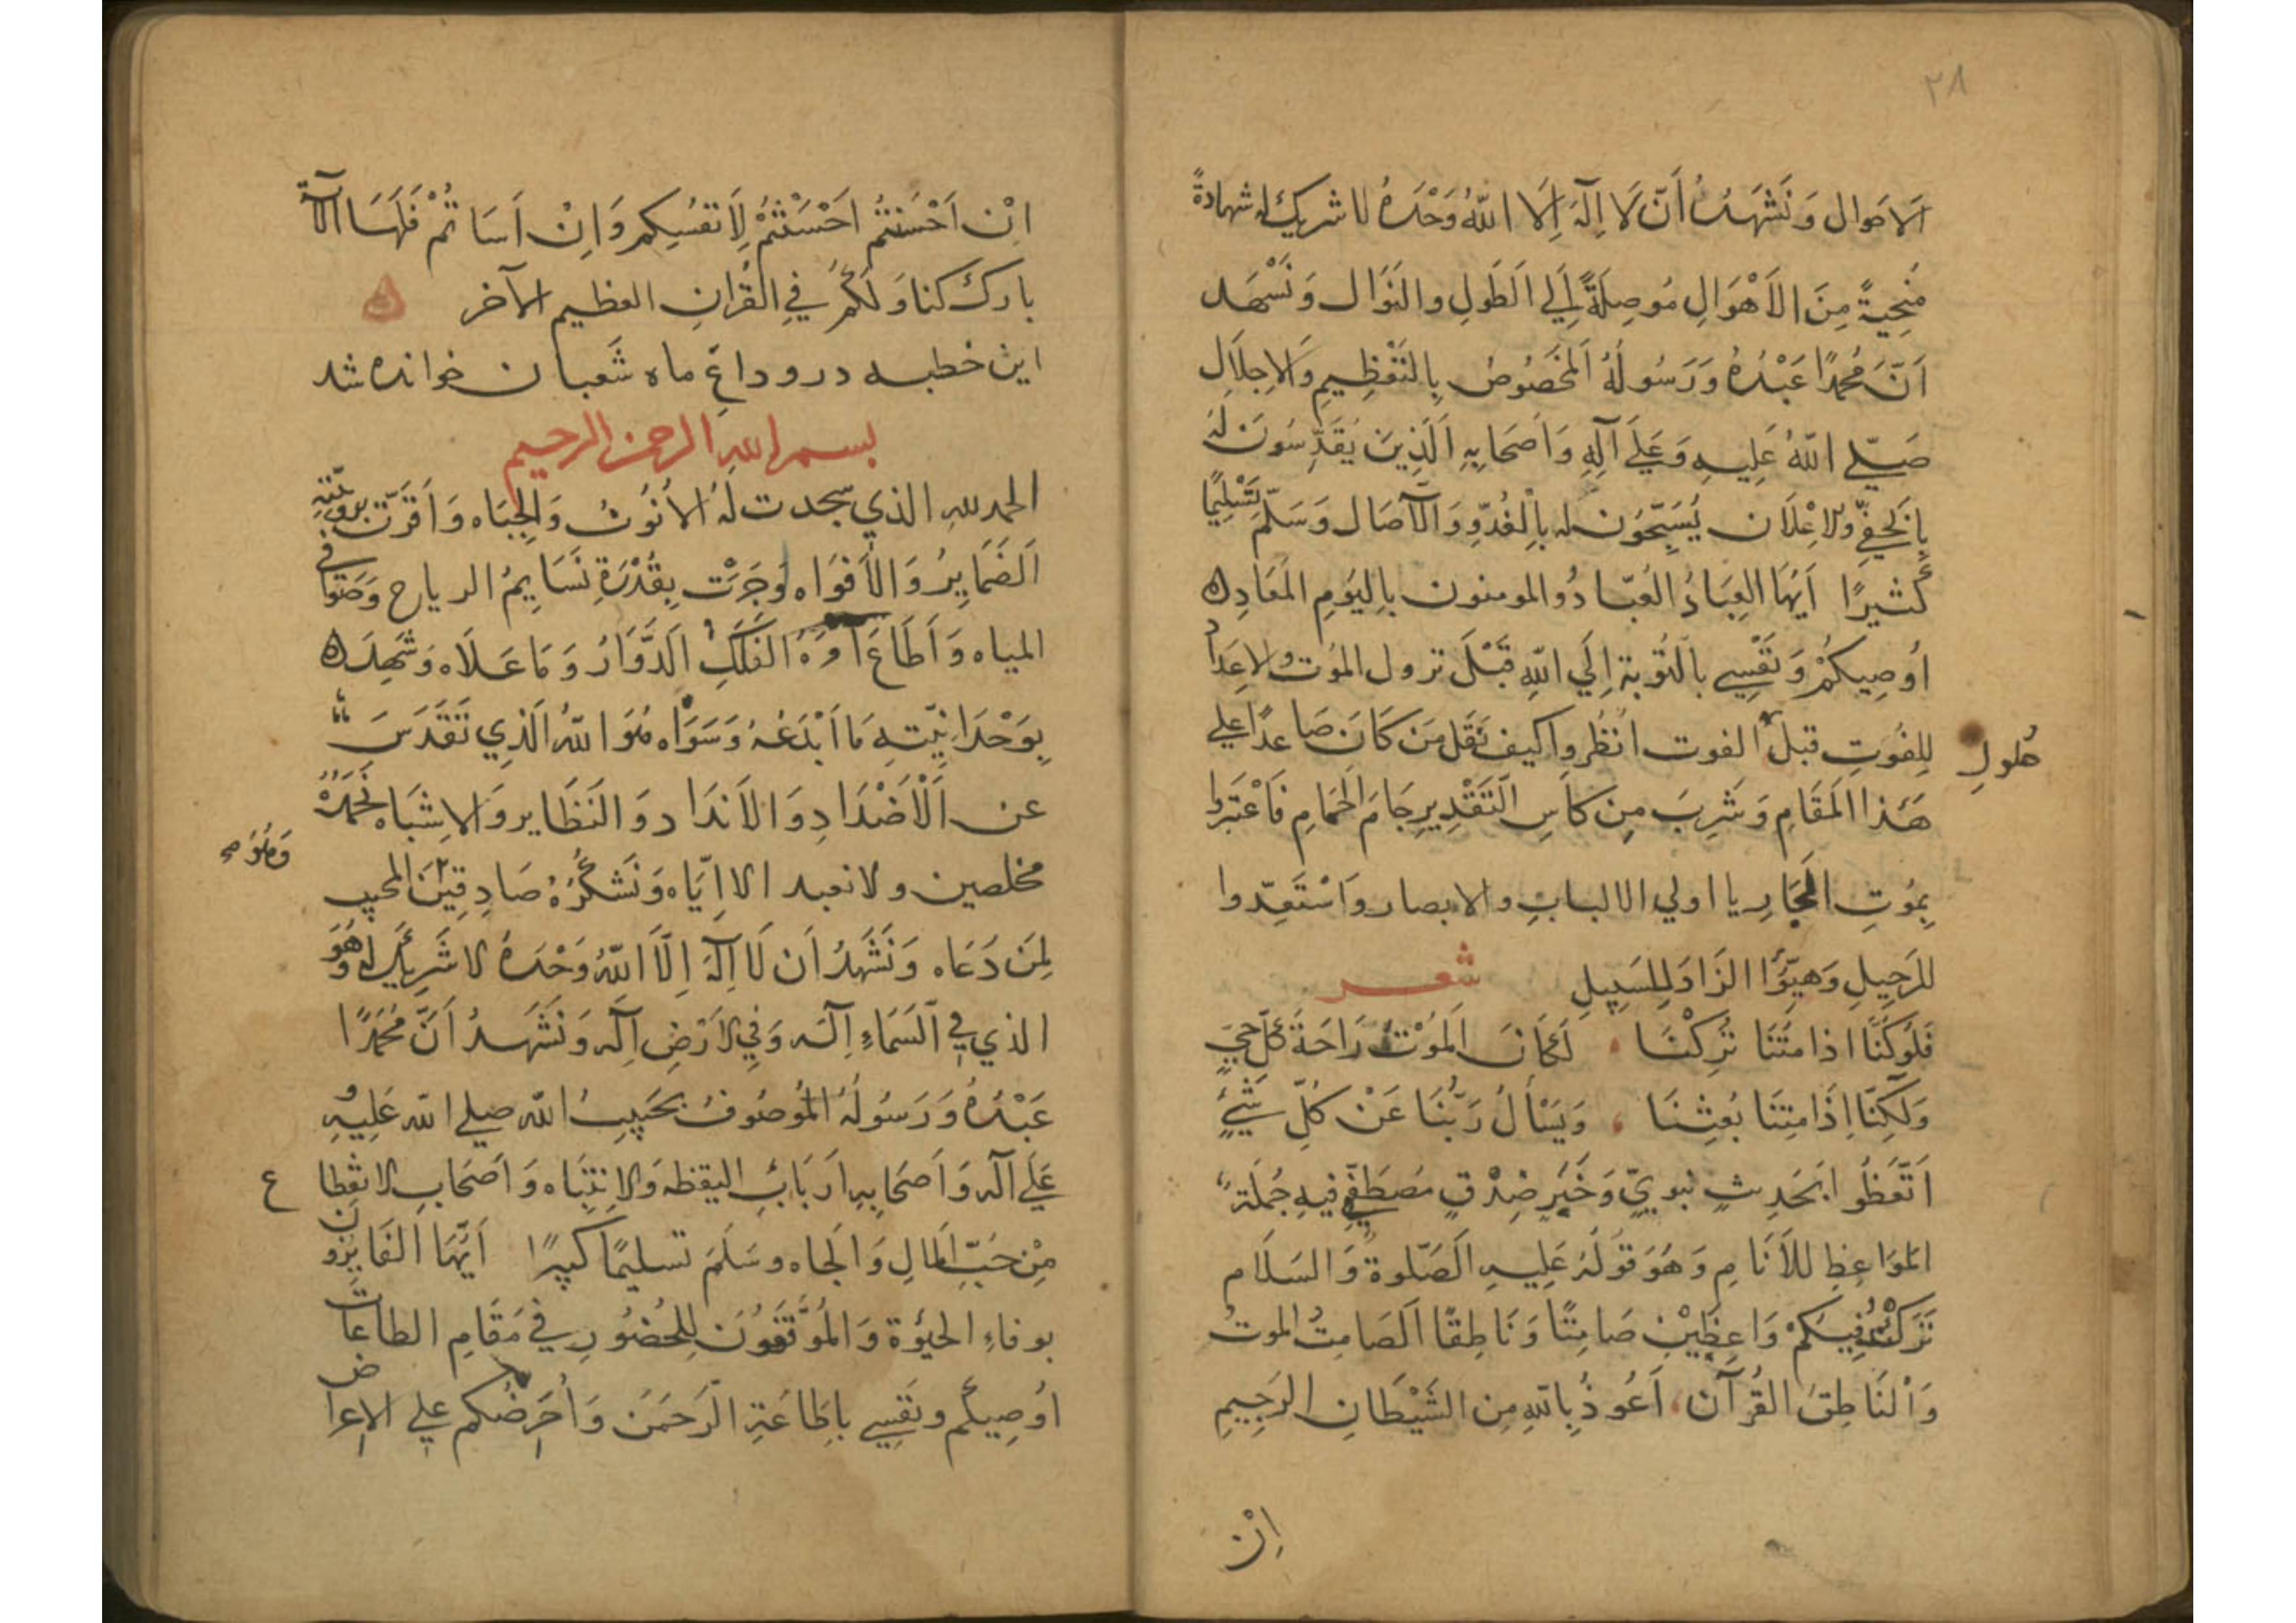 ٢٨
الاحوال وَنَشْهَدُ اَنّ لَا اِلٰهَ اِلَا اللّٰهُ وَحْدَهُ لا شريك له شهادةً
مُنجِيَةً مِنَ الاَهْوَالِ مُوصِلَةً اِلَي الَطَولِ والنَوَال وَنَشْهَد
اَنَّ مُحَمَّدًا عَبْدُهُ وَرَسُولُهُ اَلمخَصُوصُ بِالتَعْظِيمِ وَالاِجلَالِ
صَلّي اللّٰهُ عَلَيهِ وَعَلَي آلِهِ وَاَصَحَابِهِ الَذِينَ يُقَدِّسُونَ لَهُ
بِالخَفِيِّ وَالاِعْلَان يُسَبِّحُوُن له بالْغُدُوِّ وَالآصَال وَسَلّمَ تَسْلِيمًا
كَثيرًا اَيُهَا العِبَادُ العُبّادُ والمومنون بِاليَومِ المَعَادِ
اُوصِيكُمْ وَنَفْسِي بالَتَوُبة اِلَي اللّٰهِ قَبْلَ نزول المَوُت والاِعَدَادِ
لِلفُوتِ قبل الفوت انظُروا كيف نَقَلَ مَن كَانَ صَاعدًا علي
حُلولِ
هَذا المَقَامِ وَشَرِبَ مِن كأسِ الَتَقْدِيرِ جَامَ الحَمَامِ فَاعْتَبَروا
بِمُوتِ الجَارِ يا اولي الالبابِ والابصار وَاسْتَعِدّوا
للرَحِيلِ وَهَيِّؤُا الزَادَ لِلسَبِيلِ شعر
فَلَوكُنَّا اذا مِتْنَا تُرِكْنَا لَكَانَ المَوُتْ رَاحَةَ كُلِّ حَيٍّ
وَلَكِنّا اِذَا مِتنَا بُعِثْنَا وَيَسْأَلُ رَبُّنَا عَنْ كُلِّ شَيْءٍ
اَتّعَظُوا بَحَدِيثٍ نبويٍّ وَخَبَرِ صِدْقٍ مُصَطَفَيٍّ فيهِ جُمْلَة
المَوَاعِظِ للاَنَامِ وَهُوَ قَوُلَهُ عَلَيهِ الَصَّلوة وَالسَلَام
تَرَكْتُ فِيكُمْ وَاعِظَيْنِ صَامِتًا وَنَاطِقًا اَلصَامِتُ الموتُ
وَالنَاطِقُ القُرآن، اَعُوذُ بِاللّٰهِ مِن الشَيْطَانِ الرَجِيمِ
اِنْ
اِنْ اَحْسَنْتُم اَحْسَنْتُمْ لِاَنفُسِكم وَاِنْ اَسَاتُمْ فَلَهَا الآية
بارك لنا وَلَكُمْ فِي القُرانِ العظيم الآخر
اين خطبه در وداعِ ماه شَعبان خوانده شد
بسم الله الرحمن الرحيم
الحمد للهِ الذي سجدت لَهُ الاُنُوفُ وَالجِبَاه وَاَقَرّت برُبُوبيَّتِهِ
اَلضَمَايِرُ وَالأَفوَاه وَجَرَتْ بِقُدْرَةِ نَسَايِمُ الرياح وَصَوَافي
المياه وَاَطَاعَ اَمرَهُ الفَلَكُ الَدَوّارُ وَمَا عَلَاه وَشَهِدَ
بِوَحْدَانِيّتِهِ مَا اَبْدَعَهُ وَسَوَّاه هُوَ اللّٰهُ الَذِي تَقَدَسَ
عن اَلْاَضْدَادِ وَالاَندَاد وَالنَظَايِر وَالاِشبَاه نَحْمَدُهُ
مخلصين ولا نعبد الا اِيّاه وَنَشكُرُهُ صَادِقِيْنَ المجيب
وَهُوَ صح
لِمَن دَعَاه وَنَشَهدُ اَن لَا اِلٰهَ اِلّا اللّٰهُ وَحْدَهُ لا شَرِيكَ له وَهُوَ
الذي فِي السَمَاءِ اِلَه وَفِي الاَرْضِ اِلَه وَنَشَهدُ اَنَّ مُحَمَّدًا
عَبْدُهُ وَرَسُولُهُ المَوُصُوفُ بِحَبِيبِ اللّٰه صلي اللّٰه عَلَيهِ وَ
عَلَي آله وَاَصَحَابِهِ اَربَابِ اليقظه وَالاِنتِبَاه وَاَصَحَابِ الانقِطاع
مِنْ حُبّ المالِ وَالجاه وسَلَمَ تسليمًا كبيرًا اَيُّهَا الفَايِزُون
بوفاءِ الحيوة وَالمُوَفّقَوُنَ لِلحُضُورِ فِي مَقَامِ الطاعات
اُوصِيكُم ونَفِسي باِطَاعَةِ الَرَحمَن وَاُحَرِضُكم علي الاِعراض